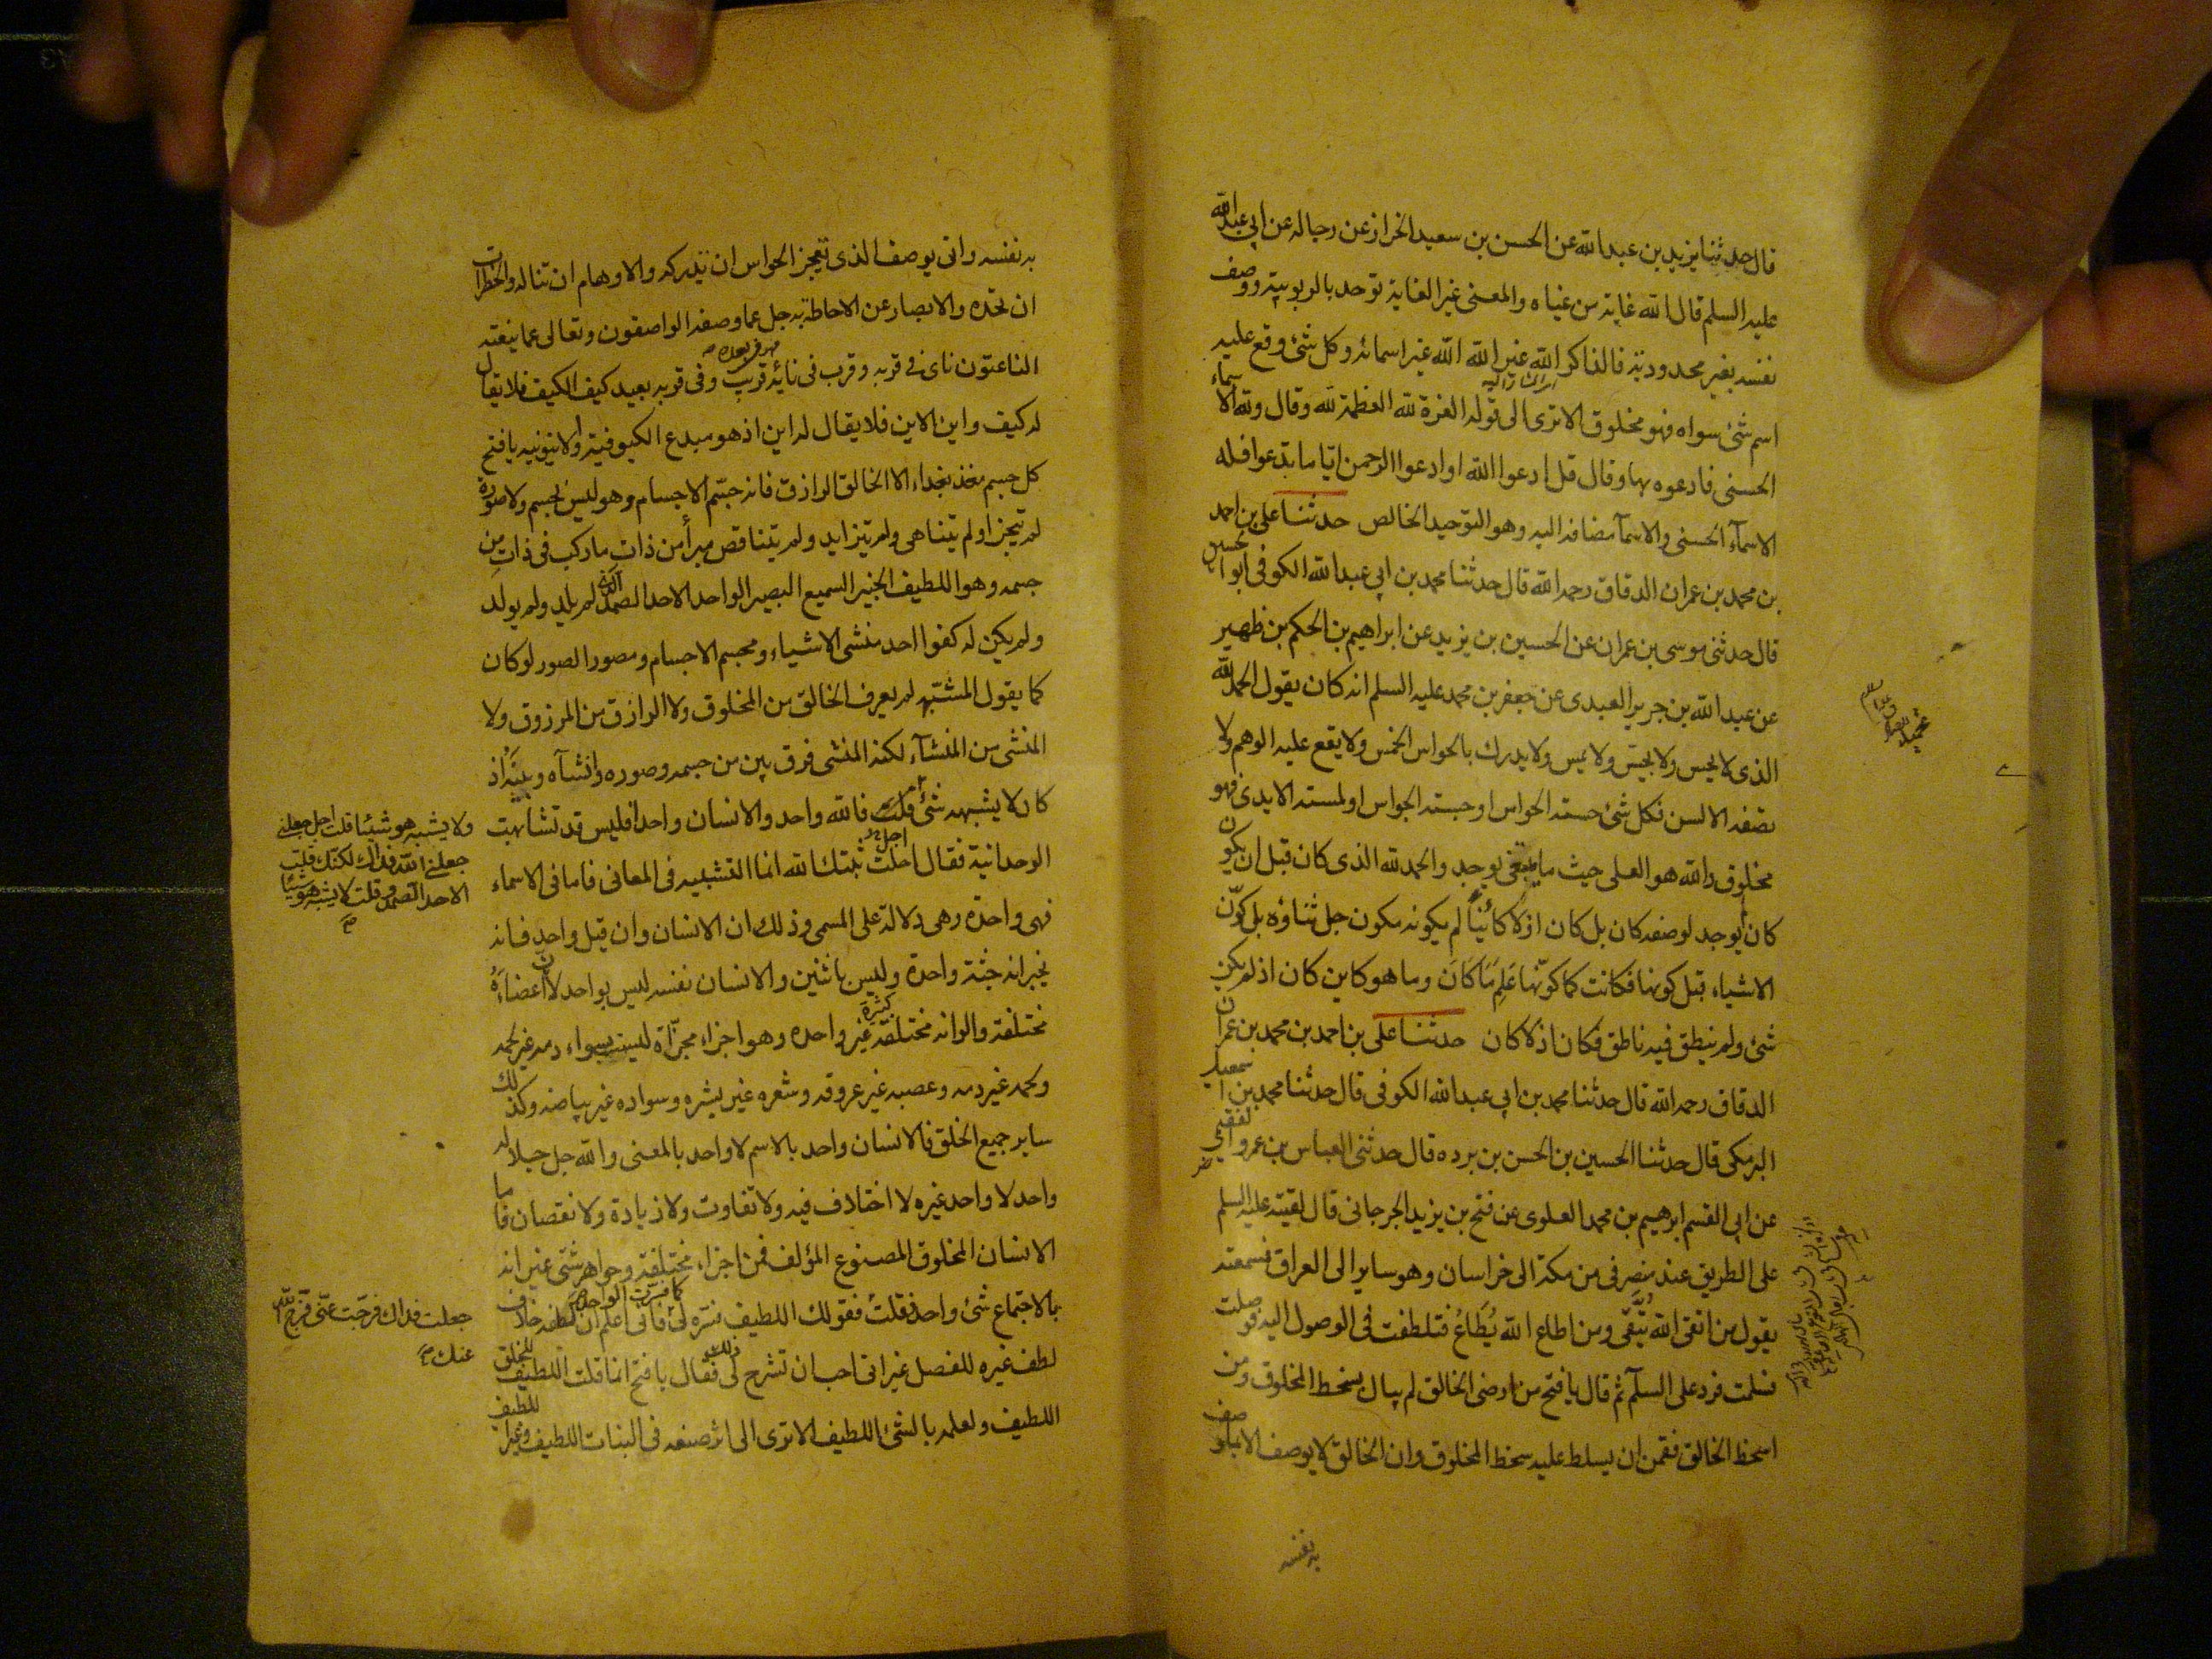 قال حدثنا يزيد بن عبدالله عن الحسن بن سعيد الخزاز عن رجاله عن ابي عبدالله
عليه السلم قال الله غاية من غياه والمعنى غير الغاية توحد بالربوبية ووصف
نفسه بغير محدودية فالذاكر الله غير الله الله غير اسمائه وكل شئ وقع عليه
اسم شئ سواه فهو مخلوق الا ترى الى قوله العزة لله العظمة لله وقال ولله الاسماء
الحسنى فادعوه بها وقال قل ادعوا الله او ادعوا الرحمن ايا ما تدعوا فله
الاسمآء الحسنى والاسمآ مضافه اليه وهو التوحيد الخالص حدثنا على بن احمد
بن محمد بن عمران الدقاق رحمه الله قال حدثنا محمد بن ابي عبدالله الكوفى ابو الحسين
قال حدثنى موسى بن عمران عن الحسين بن يزيد عن ابراهيم بن الحكم بن ظهير
عن عبدالله بن جرير العبدى عن جعفر بن محمد عليه السلم انه كان يقول الحمدلله
الذى لا يحس ولا يجس ولا يمس ولا يدرك بالحواس الخمس ولا يقع عليه الوهم ولا
تصفه الالسن فكل شئ حسته الحواس او جسته الجواس او لمسته الايدى فهو
مخلوق والله هو العلى حيث ما يبتغى يوجد والحمد لله الذى كان قبل ان يكون
كان لم يوجد لوصفه كان بل كان اذلا كائنا لم يكونه مكون جل ثناؤه بل كوّن
الاشياء قبل كونها فكانت كما كونها عَلِمَ مَا كَانَ وما هو كاين كان اذ لم يكن
شئ ولم ينطق فيه ناطق فكان اذ لا كان حدثنا على بن احمد بن محمد بن عمران
الدقاق رحمه الله قال حدثنا محمد بن ابي عبدالله الكوفى قال حدثنا محمد بن اسمعيل
البرمكى قال حدثنا الحسين بن الحسن بن برده قال حدثنى العباس بن عمرو الفقيمى
عن ابى القسم ابرهيم بن محمد العلوى عن فتح بن يزيد الجرجانى قال لقيته عليه السلم
على الطريق عند منصرفى من مكة الى خراسان وهو ساير الى العراق فسمعته
يقول من اتقى الله يُتَّقى ومن اطاع الله يُطَاعُ فتلطفت فى الوصول اليه فوصلت
فسلمت فرد على السلآم ثم قال يا فتح من ارضى الخالق لم يبال بسخط المخلوق ومن
اسخط الخالق فقمن ان يسلط عليه سخط المخلوق وان الخالق لا يوصف الا بما وصف
به نفسه
به نفسه وانى يوصف الذى تعجز الحواس ان تدركه والاوهام ان تناله والخطرات
ان تحده والابصار عن الاحاطة به جل عما وصفه الواصفون وتعالى عما ينعته
الناعتون ناى فى قربه وقرب فى نائه قريب وفى قربه بعيد كيف الكيف فلا يقال
له كيف واين الاين فلا يقال له اين اذ هو مبدع الكيفوفية والاينونيه يا فتح
كل جسم مغذ بغذاء الا الخالق الرازق فانه جسّم الاجسام وهو ليس بجسم ولا صورة
لم يتجزا ولم يتناهى ولم يتزايد ولم يتناقص مبرأ من ذات ما ركب فى ذات من
جسمه وهو اللطيف الخبير السميع البصير الواحد الاحد الصمد الذى لم يلد ولم يولد
ولم يكن له كفوا احد منشى الاشياء ومجسم الاجسام ومصور الصور لو كان
كما يقول المشبّهه لم يعرف الخالق من المخلوق ولا الرازق من المرزوق ولا
المنشى من المنشآء لكنه المنشى فرق بين من جسمه وصوره وانشآه وبينه اذ
كان لا يشبهه شئ قلت فالله واحد والانسان واحد افليس قد تشابهت
الوحدانية فقال احلت ثبتك الله انما التشبيه فى المعانى فاما فى الاسماء
فهى واحدة وهى دلالة على المسمى وذلك ان الانسان وان قيل واحد فانه
يخبر انه جثة واحدة وليس باثنين والانسان نفسه ليس بواحد لان اعضاءه
مختلفة والوانه مختلفة كثيرة غير واحده وهو اجزاء مجزّاة ليست بسواء دمه غير لحمه
ولحمه غير دمه وعصبه غير عروقه وشعره غير بشره وسواده غير بياضه وكذلك
ساير جميع الخلق فالانسان واحد بالاسم لا واحد بالمعنى والله جل جلاله
واحد لا واحد غيره لا اختلاف فيه ولا تفاوت ولا زيادة ولا نقصان فاما
الانسان المخلوق المصنوع المؤلف فمن اجزاء مختلفة وجواهر شتى غير انه
بالاجتماع شئ واحد فقلت فقولك اللطيف فسّره لى كما فسرت الواحد فانى اعلم ان لطفه خلاف
لطف غيره للفصل غير انى احب ان تشرح لى ذلك فقال يا فتح انما قلت اللطيف للخلق
اللطيف ولعلمه بالشئ اللطيف الا ترى الى اثر صنعه فى النبات اللطيف وغير اللطيف
ولا يشبه هو شيئا قلت اجل جعلنى
جعلنى الله فداك لكنك قلت
الاحد الصمد وقلت لا يشبه هو شيئا
جعلت فداك فرجت عنى فرج الله
عنك